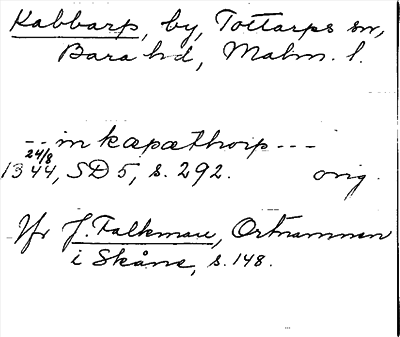 Kabbarp, by, Tottarps sn,
Bara hd, Malm. l.
-- in kapæthorp ---
24/8
1344, SD 5, s. 292. orig.
Jfr J. Falkman, Ortnamnen
i Skåne, s. 148.